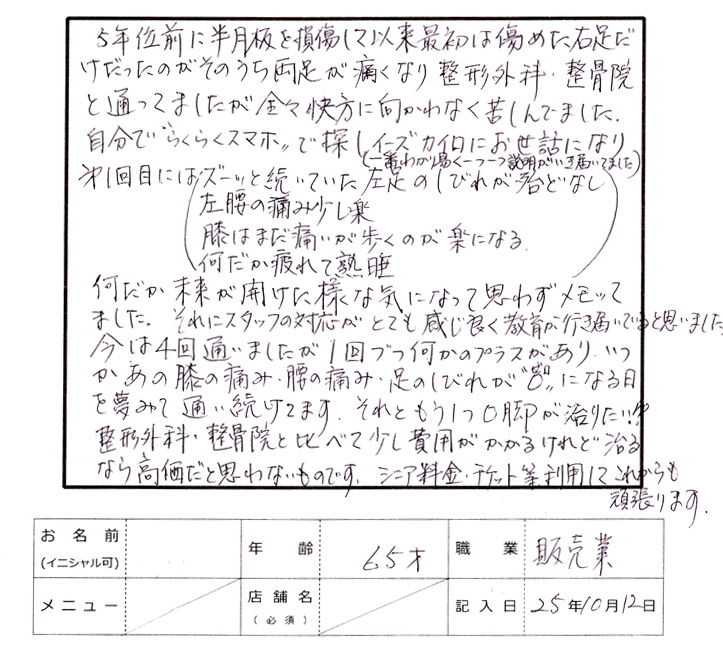 5年位前に半月板を損傷して以来最初は傷めた右足だ
けだったのがそのうち両足が痛くなり整形外科・整骨院
と通ってましたが全々快方に向かわなく苦しんでました。
自分で"らくらくスマホ"で探しイーズカイロにお世話になり
(一番わかり易く一つ一つ説明がいき届いてました)
才1回目にはズーッと続いていた左足のしびれが殆どなし
左腰の痛み少し楽
膝はまだ痛いが歩くのが楽になる。
何だか疲れて熟睡
何だか未来が開けた様な気になって思わずメモッて
ました。それにスタッフの対応がとても感じ良く教育が行き届いていると思いました。
今は4回通いましたが1回づつ何かのプラスがあり、いつ
かあの膝の痛み・腰の痛み・足のしびれが"0"になる日
を夢みて通い続けてます。それともう1つO脚が治りたい!!?
整形外科・整骨院と比べて少し費用がかかるけれど治る
なら高価だと思わないものです。シニア料金・チケット等利用してこれからも
頑張ります。
お名前
(イニシャル可)
年齢 65才
職業 販売業
メニュー
店舗名
(必須)
記入日 25年10月12日